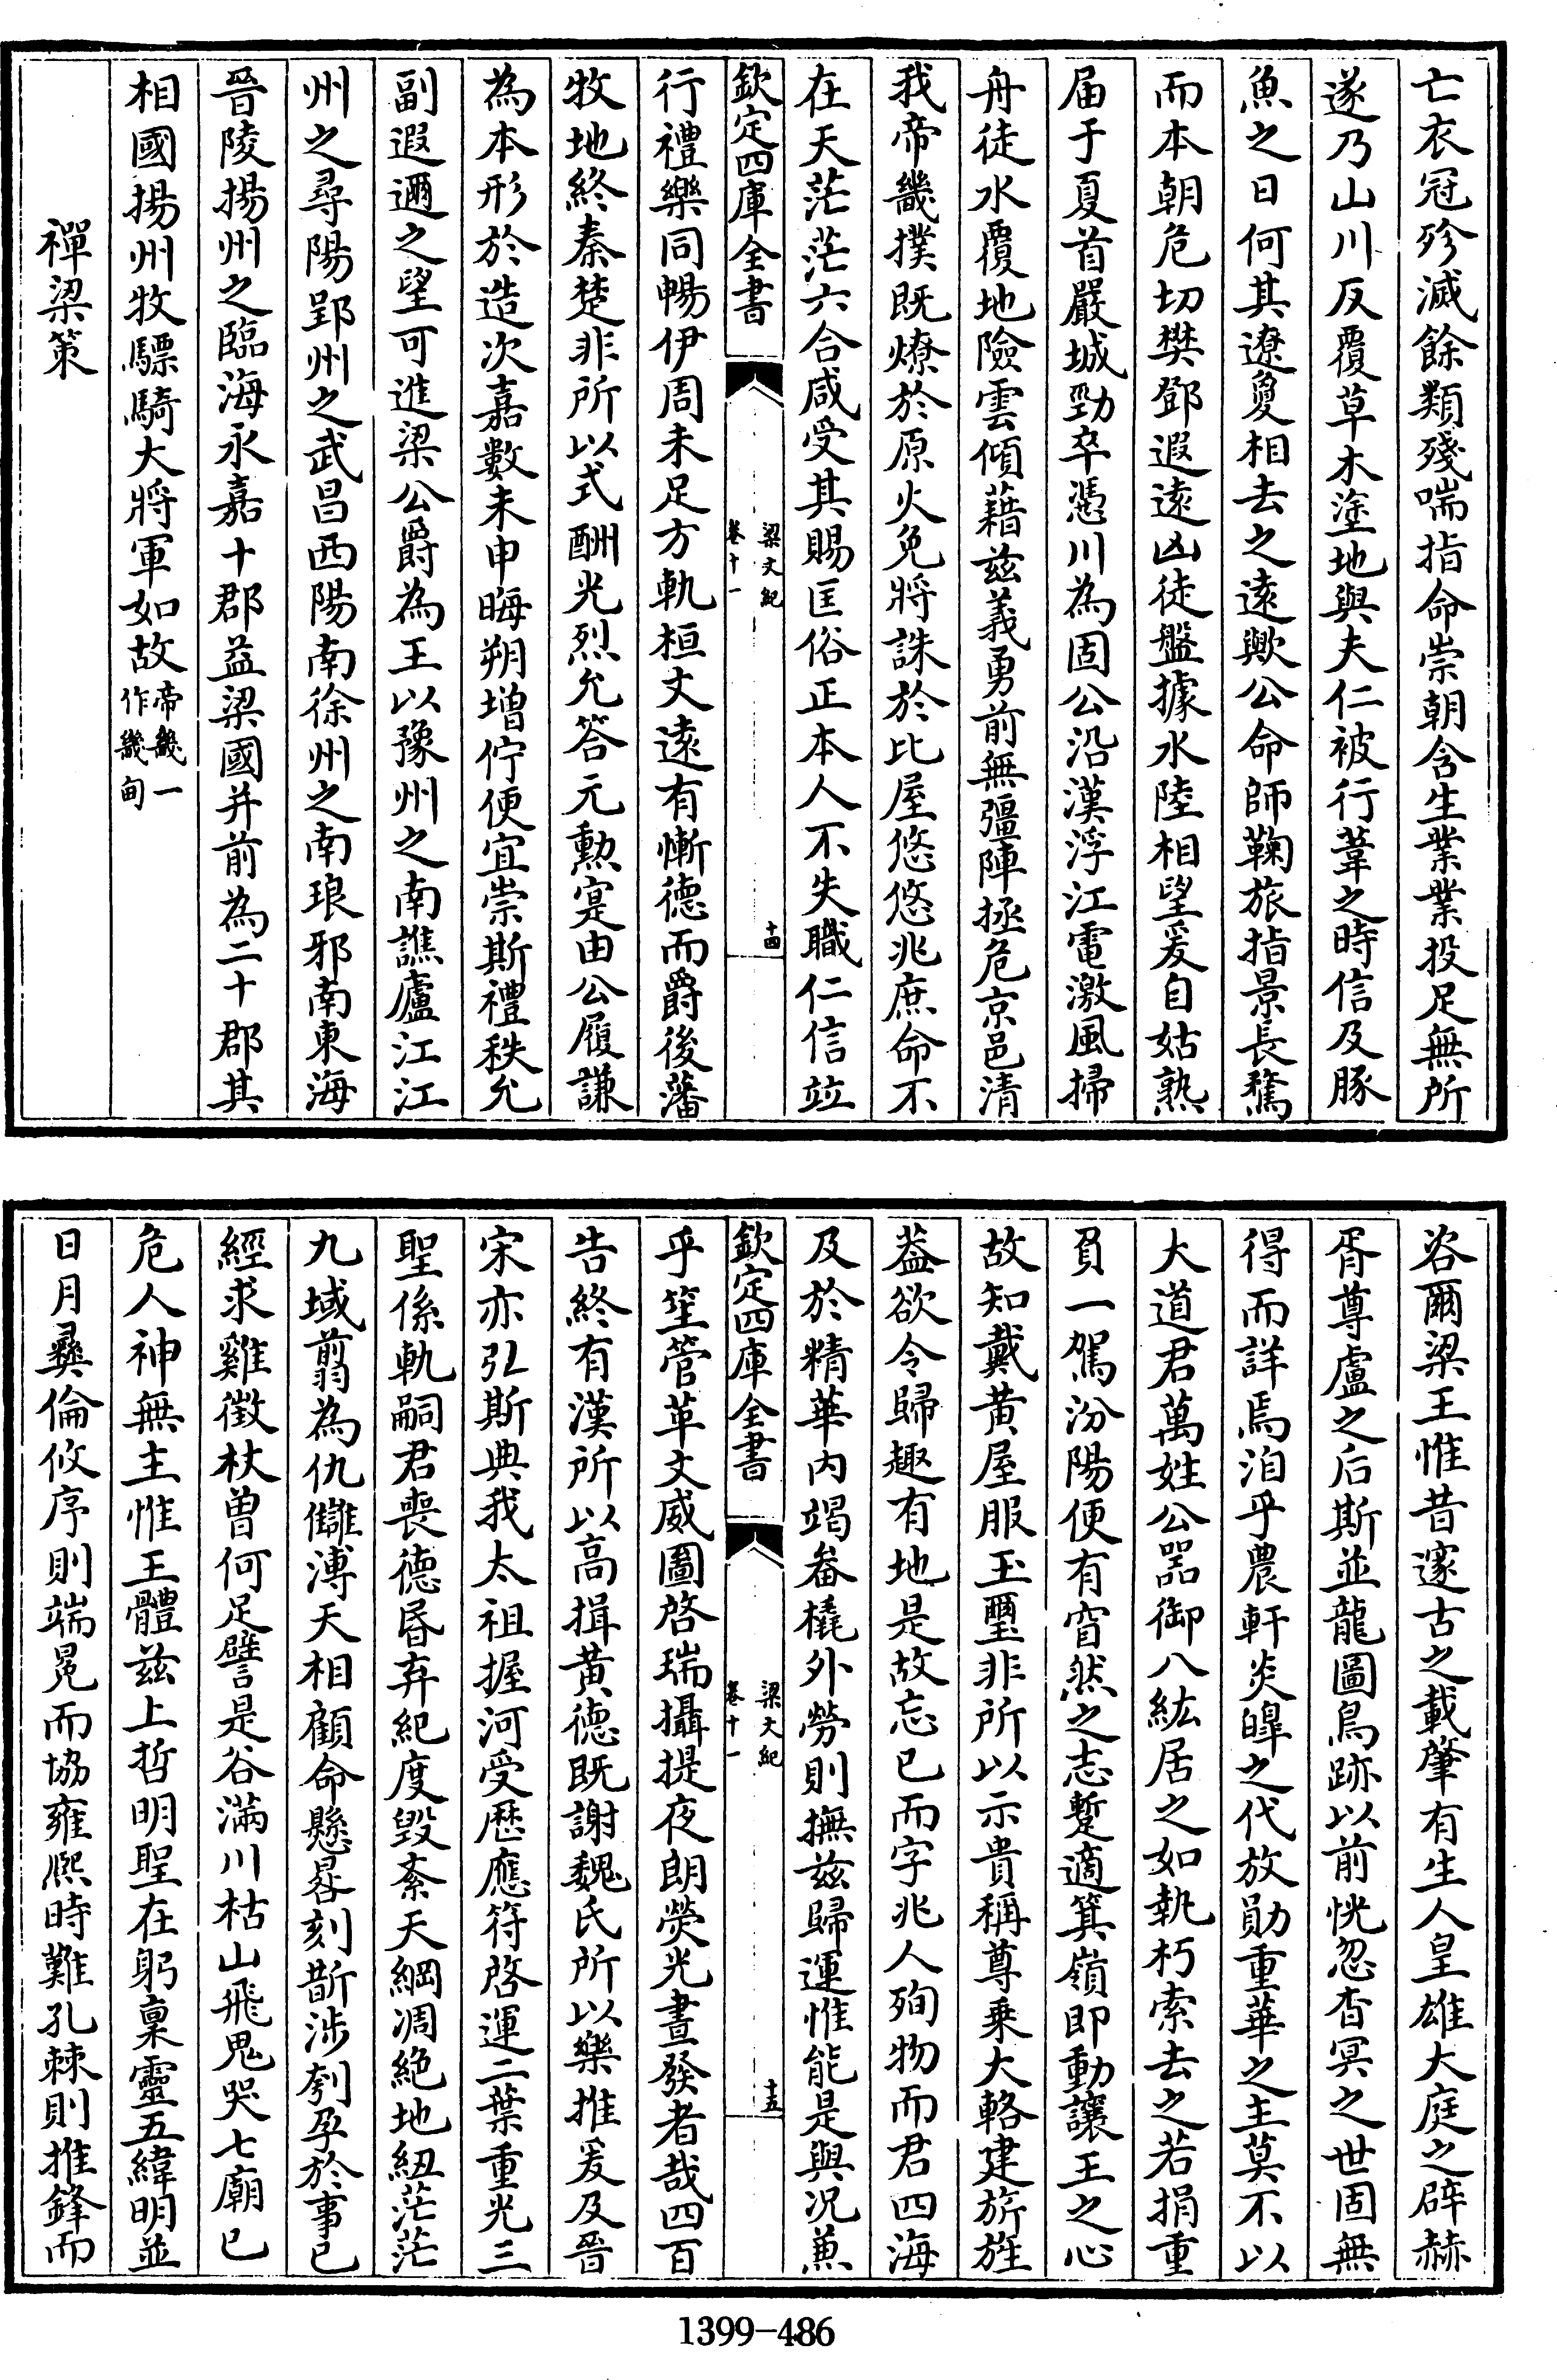 亡衣冠殄滅餘類殘喘指命崇朝含生業業投足無所
遂乃山川反覆草木塗地與夫仁被行葦之時信及豚
魚之日何其遼敻相去之遠歟公命師鞠旅指景長騖
而本朝危切樊鄧遐遠凶徒盤據水陸相望爰自姑熟
届于夏首嚴城勁卒憑川為固公沿漢浮江電激風掃
舟徒水覆地險雲傾藉兹義勇前無彊陣拯危京邑清
我帝畿撲既燎於原火免將誅於比屋悠悠兆庶命不
在天茫茫六合咸受其賜匡俗正本人不失職仁信竝
欽定四庫全書
梁文紀
卷十一
十四
行禮樂同暢伊周未足方軌桓文遠有慚德而爵後藩
牧地終秦楚非所以式酬光烈允答元勲寔由公履謙
為本形於造次嘉數未申晦朔增佇便宜崇斯禮秩允
副遐邇之望可進梁公爵為王以豫州之南譙廬江江
州之尋陽郢州之武昌西陽南徐州之南琅邪南東海
晉陵揚州之臨海永嘉十郡益梁國并前為二十郡其
相國揚州牧驃騎大將軍如故帝畿一
作畿甸
禪梁策
咨爾梁王惟昔邃古之載肇有生人皇雄大庭之辟赫
胥尊盧之后斯並龍圖鳥跡以前恍忽杳冥之世固無
得而詳焉洎乎農軒炎皥之代放勛重華之主莫不以
大道君萬姓公器御八紘居之如執朽索去之若捐重
負一駕汾陽便有窅然之志蹔適箕嶺即動讓王之心
故知戴黄屋服玉璽非所以示貴稱尊乗大輅建旂旌
葢欲令歸趣有地是故忘已而字兆人殉物而君四海
及於精華内竭畚橇外勞則撫兹歸運惟能是與况兼
欽定四庫全書
梁文紀
卷十一
十五
乎笙管革文威圖啓瑞攝提夜朗熒光晝發者哉四百
告終有漢所以高揖黄德既謝魏氏所以樂推爰及晉
宋亦弘斯典我太祖握河受歴應符啓運二葉重光三
聖係軌嗣君喪德昏弃紀度毁紊天綱凋絶地紐茫茫
九域翦為仇讎溥天相顧命懸晷刻斮涉刳孕於事已
經求雞徵杖曾何足譬是谷滿川枯山飛鬼哭七廟已
危人神無主惟王體兹上哲明聖在躬稟靈五緯明並
日月彝倫攸序則端冕而協雍熙時難孔棘則推鋒而
1399-486